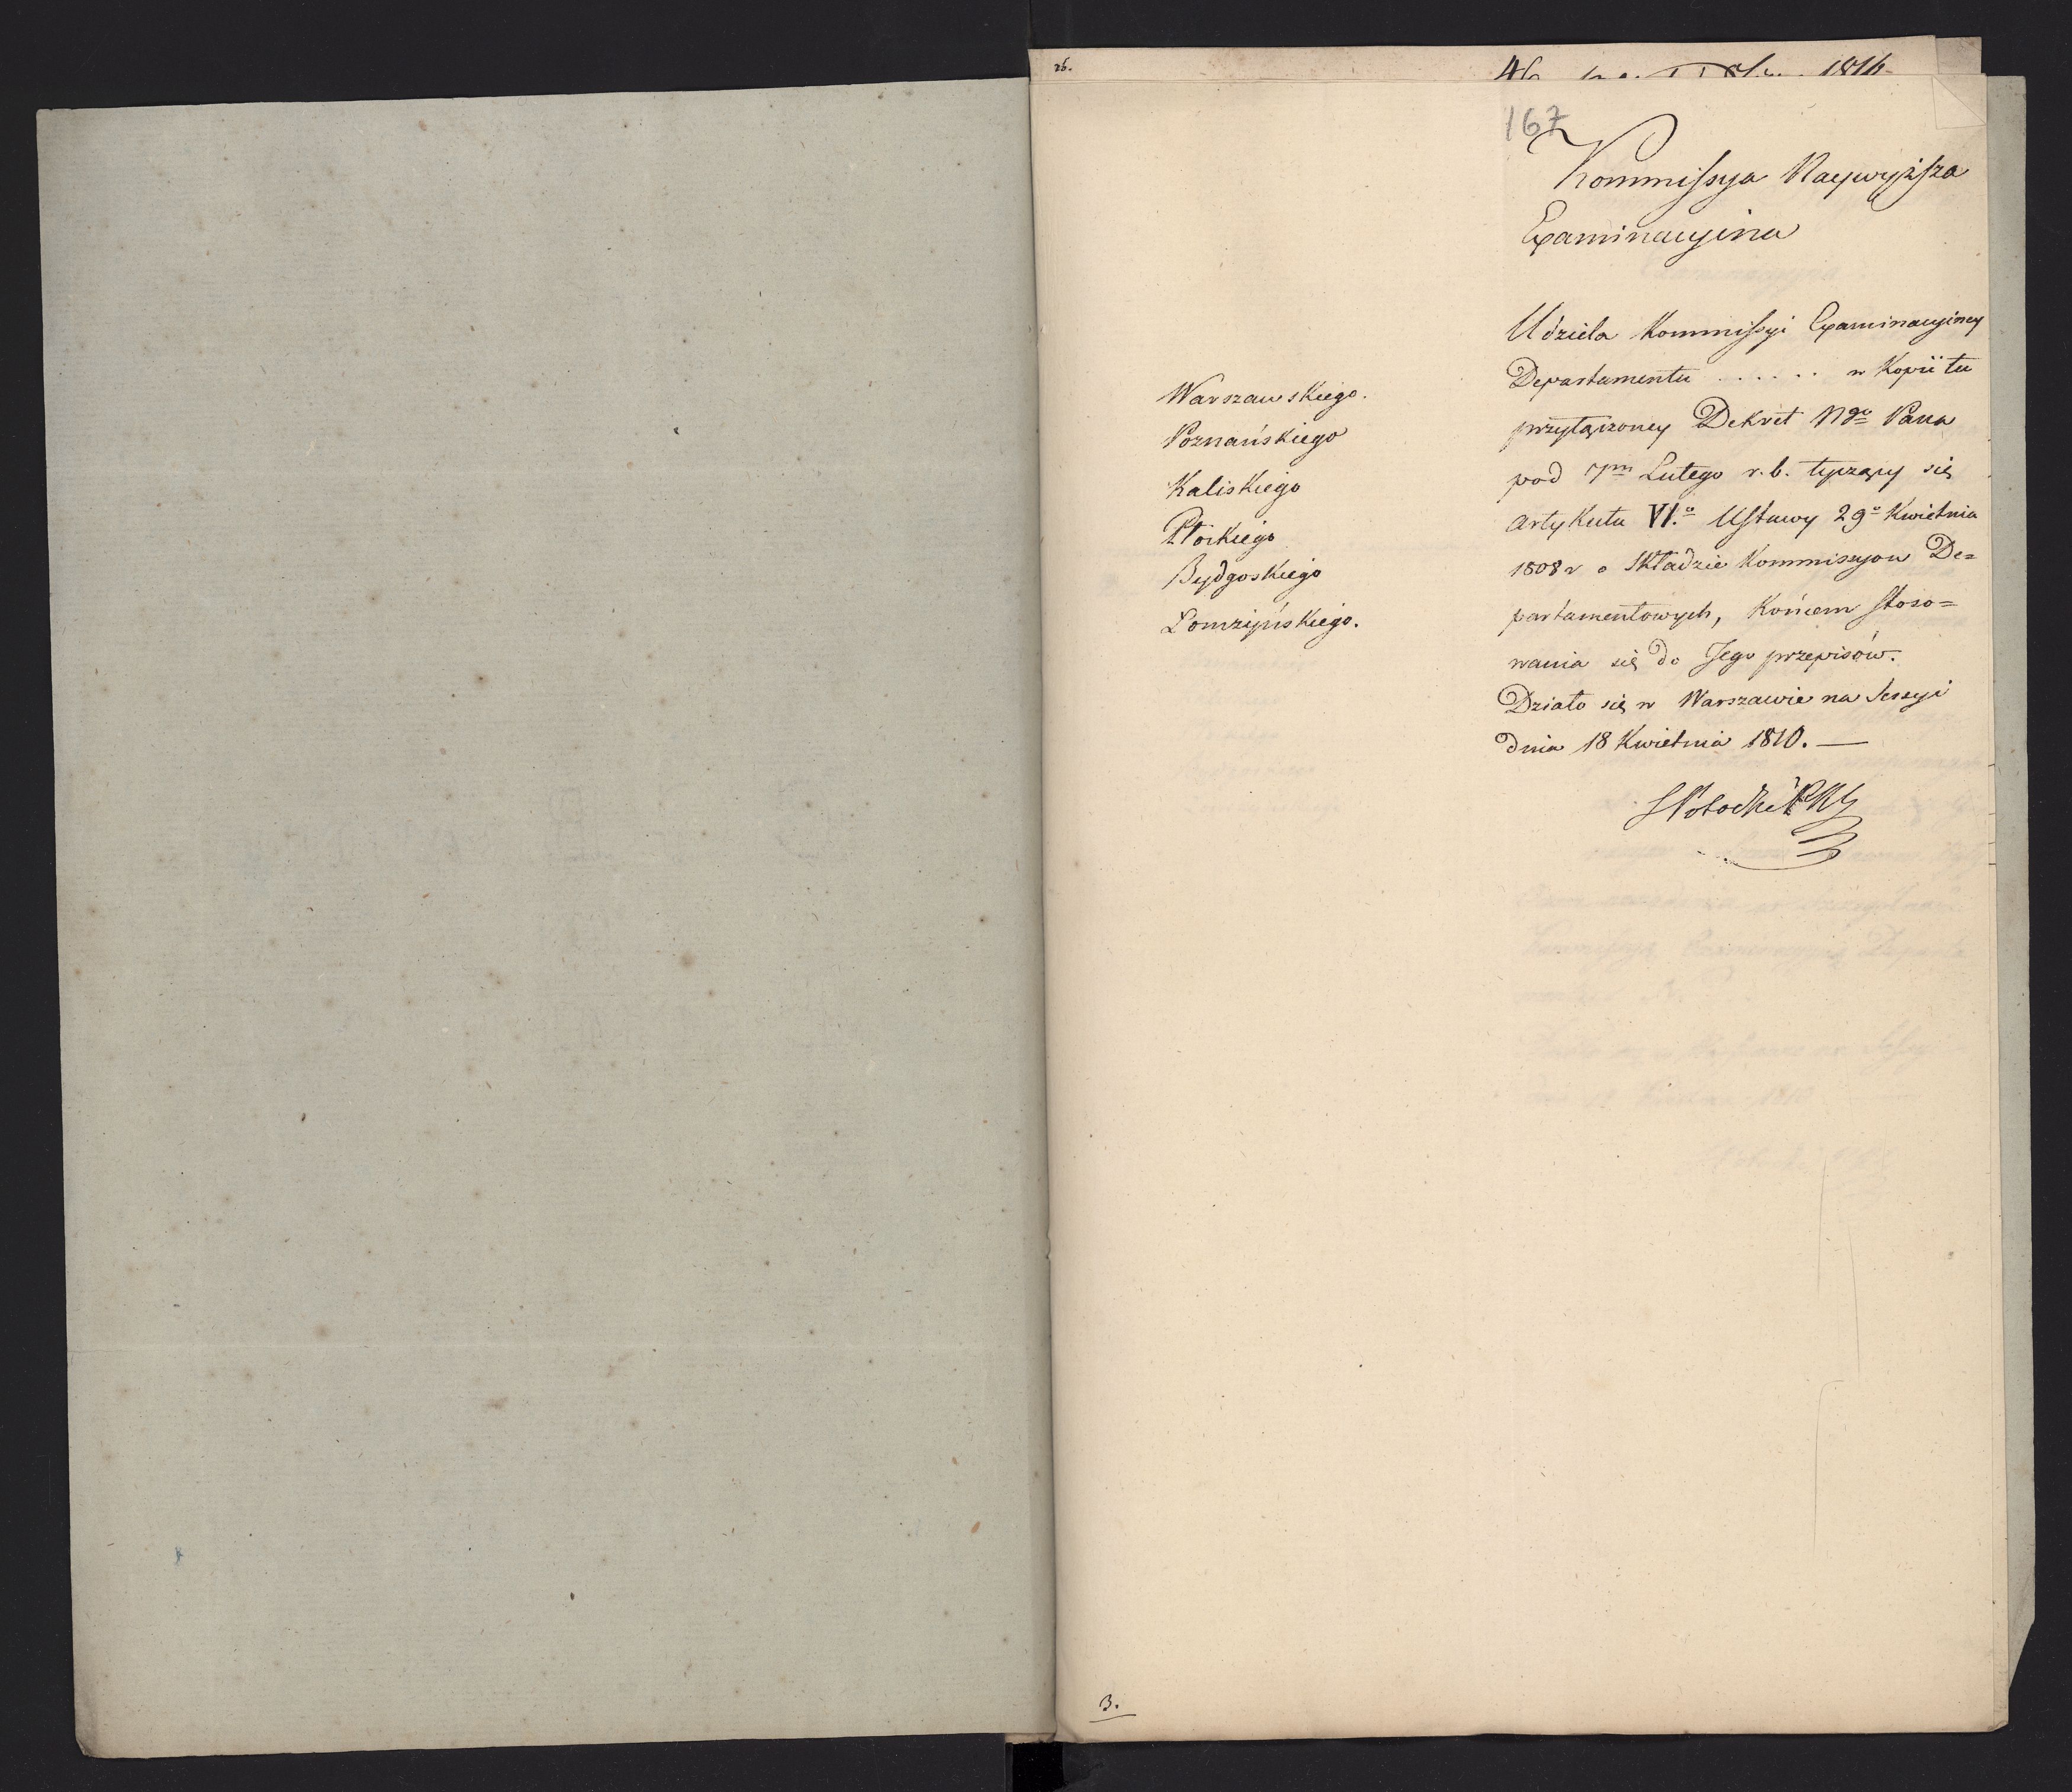 26.
1816
167
Kommissya Naywyższa
Examinacyina
Udziela Kommissyi Examinacyiney
Departamentu . . . . . . w Kopii tu
przyłączoney Dekret Ngo Pana
pod 7m Lutego r. b. tyczący się
Artykułu VI.o Ustawy 29o Kwietnia
1808 r o Składzie Kommissyow De=
partamentowych, Końcem stoso=
wania się do Jego przepisów.
Działo się w Warszawie na Sessyi
dnia 18 Kwietnia 1810. —
Warszawskiego.
Poznańskiego
Kaliskiego
Płockiego
Bydgoskiego
Łomzyńskiego.
SPotocki
3.